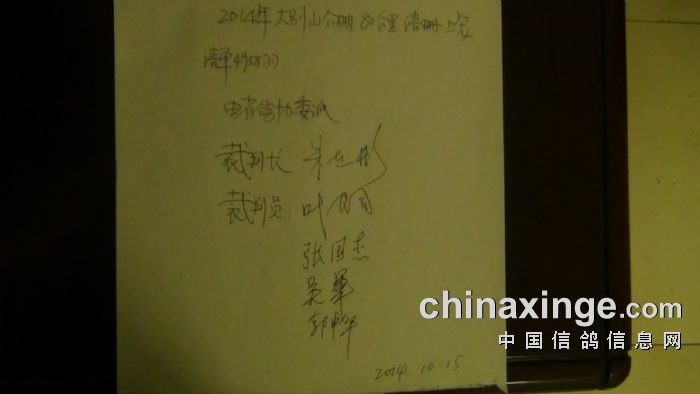 2014年大别山公棚80公里清棚上笼
清单4958羽
由省鸽协委派
裁判长
裁判员: 叶
张国杰
吴军
郭
2014.10.15
chinaxinge.com
中国信鸽信息网